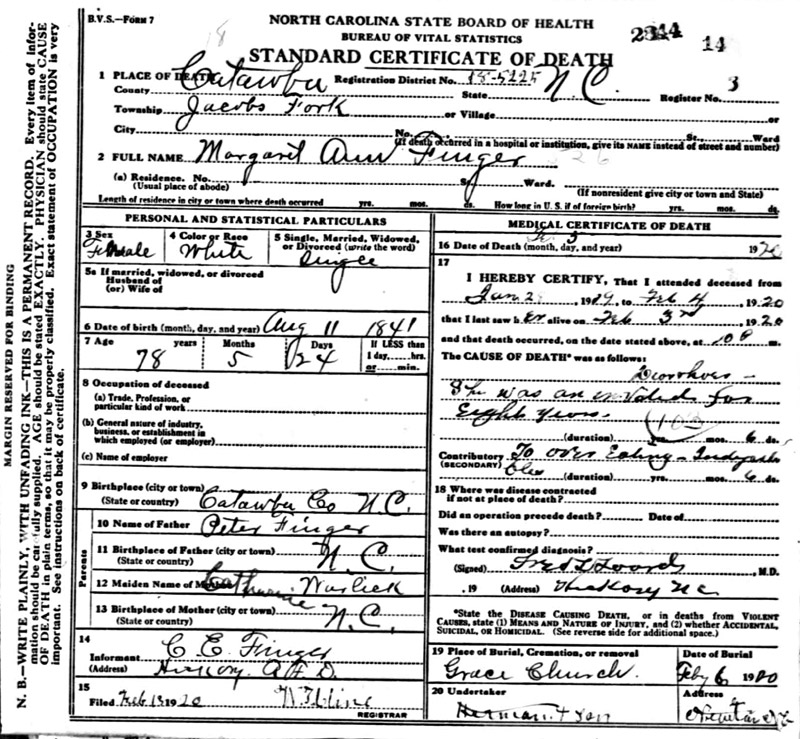 B.V.S.—FORM 7
NORTH CAROLINA STATE BOARD OF HEALTH
BUREAU OF VITAL STATISTICS
STANDARD CERTIFICATE OF DEATH
14
1 PLACE OF DEATH
County Catawba Registration District No. 18-5225 State N.C. Register No. 3
Township Jacobs Fork or Village or
City No. St. Ward
(If death occurred in a hospital or institution, give its NAME instead of street and number)
2 FULL NAME Margaret Ann Finger
(a) Residence. No. St. Ward.
(Usual place of abode) (If nonresident give city or town and State)
Length of residence in city or town where death occurred yrs. mos. ds. How long in U. S. if of foreign birth? yrs. mos. ds.
PERSONAL AND STATISTICAL PARTICULARS
3 Sex Female
4 Color or Race White
5 Single, Married, Widowed, or Divorced (write the word) Single
5a If married, widowed, or divorced
Husband of
(or) Wife of
6 Date of birth (month, day, and year) Aug 11 1841
7 Age 78 years 5 Months 24 Days If LESS than
1 day, hrs.
or min.
8 Occupation of deceased
(a) Trade, Profession, or
particular kind of work
(b) General nature of industry,
business, or establishment in
which employed (or employer)
(c) Name of employer
9 Birthplace (city or town)
(State or country) Catawba Co N.C.
Parents
10 Name of Father Peter Finger
11 Birthplace of Father (city or town)
(State or country) N.C.
12 Maiden Name of Mother Catharine Warlick
13 Birthplace of Mother (city or town)
(State or country) N.C.
14
Informant C. E. Finger
(Address) Hickory R.F.D.
15
Filed Feb 13 1920
REGISTRAR
MEDICAL CERTIFICATE OF DEATH
16 Date of Death (month, day, and year) 1920
17
I HEREBY CERTIFY, That I attended deceased from
Jan 2 1919, to Feb 4, 1920
that I last saw her alive on Feb 3rd, 1920
and that death occurred, on the date stated above, at 10 P m.
The CAUSE OF DEATH* was as follows:
She was an invalid for
Eight years
(duration) yrs. mos. 6 ds.
Contributory To over Eating
(SECONDARY)
(duration) yrs. mos. 6 ds.
18 Where was disease contracted
if not at place of death?
Did an operation precede death? Date of
Was there an autopsy?
What test confirmed diagnosis?
(Signed) M.D.
, 19 (Address) Hickory NC
*State the DISEASE CAUSING DEATH, or in deaths from VIOLENT
CAUSES, state (1) MEANS AND NATURE OF INJURY, and (2) whether ACCIDENTAL,
SUICIDAL, or HOMICIDAL. (See reverse side for additional space.)
19 Place of Burial, Cremation, or removal Date of Burial
Grace Church. Feby 6 1920
20 Undertaker Address
Herman & Son Newton N.C.
MARGIN RESERVED FOR BINDING
N. B.—WRITE PLAINLY, WITH UNFADING INK—THIS IS A PERMANENT RECORD. Every item of information should be carefully supplied. AGE should be stated EXACTLY. PHYSICIAN should state CAUSE OF DEATH in plain terms, so that it may be properly classified. Exact statement of OCCUPATION is very important. See instructions on back of certificate.